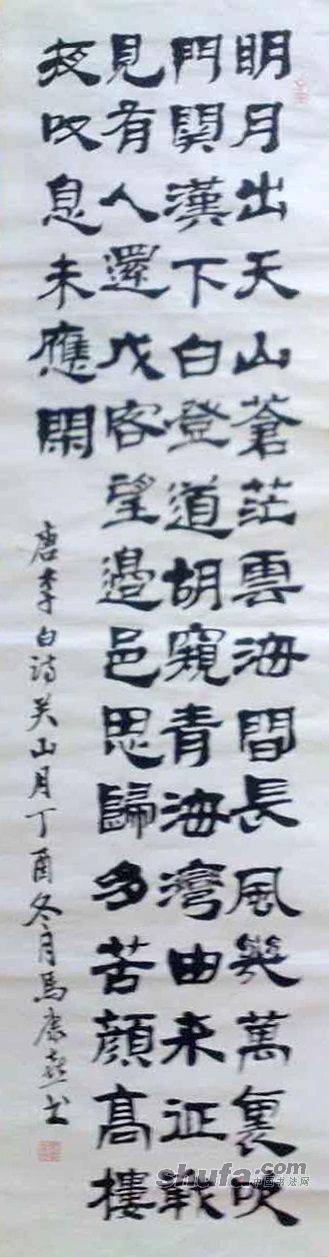 明月出天山蒼茫雲海間長風幾萬裏吹
門關漢下白登道胡窺青海灣由来征戰
見有人還戍客望邊邑思歸多苦顏高樓
夜叹息未應閑
唐李白诗关山月丁酉冬月馬书
shufa.com
中国书法网